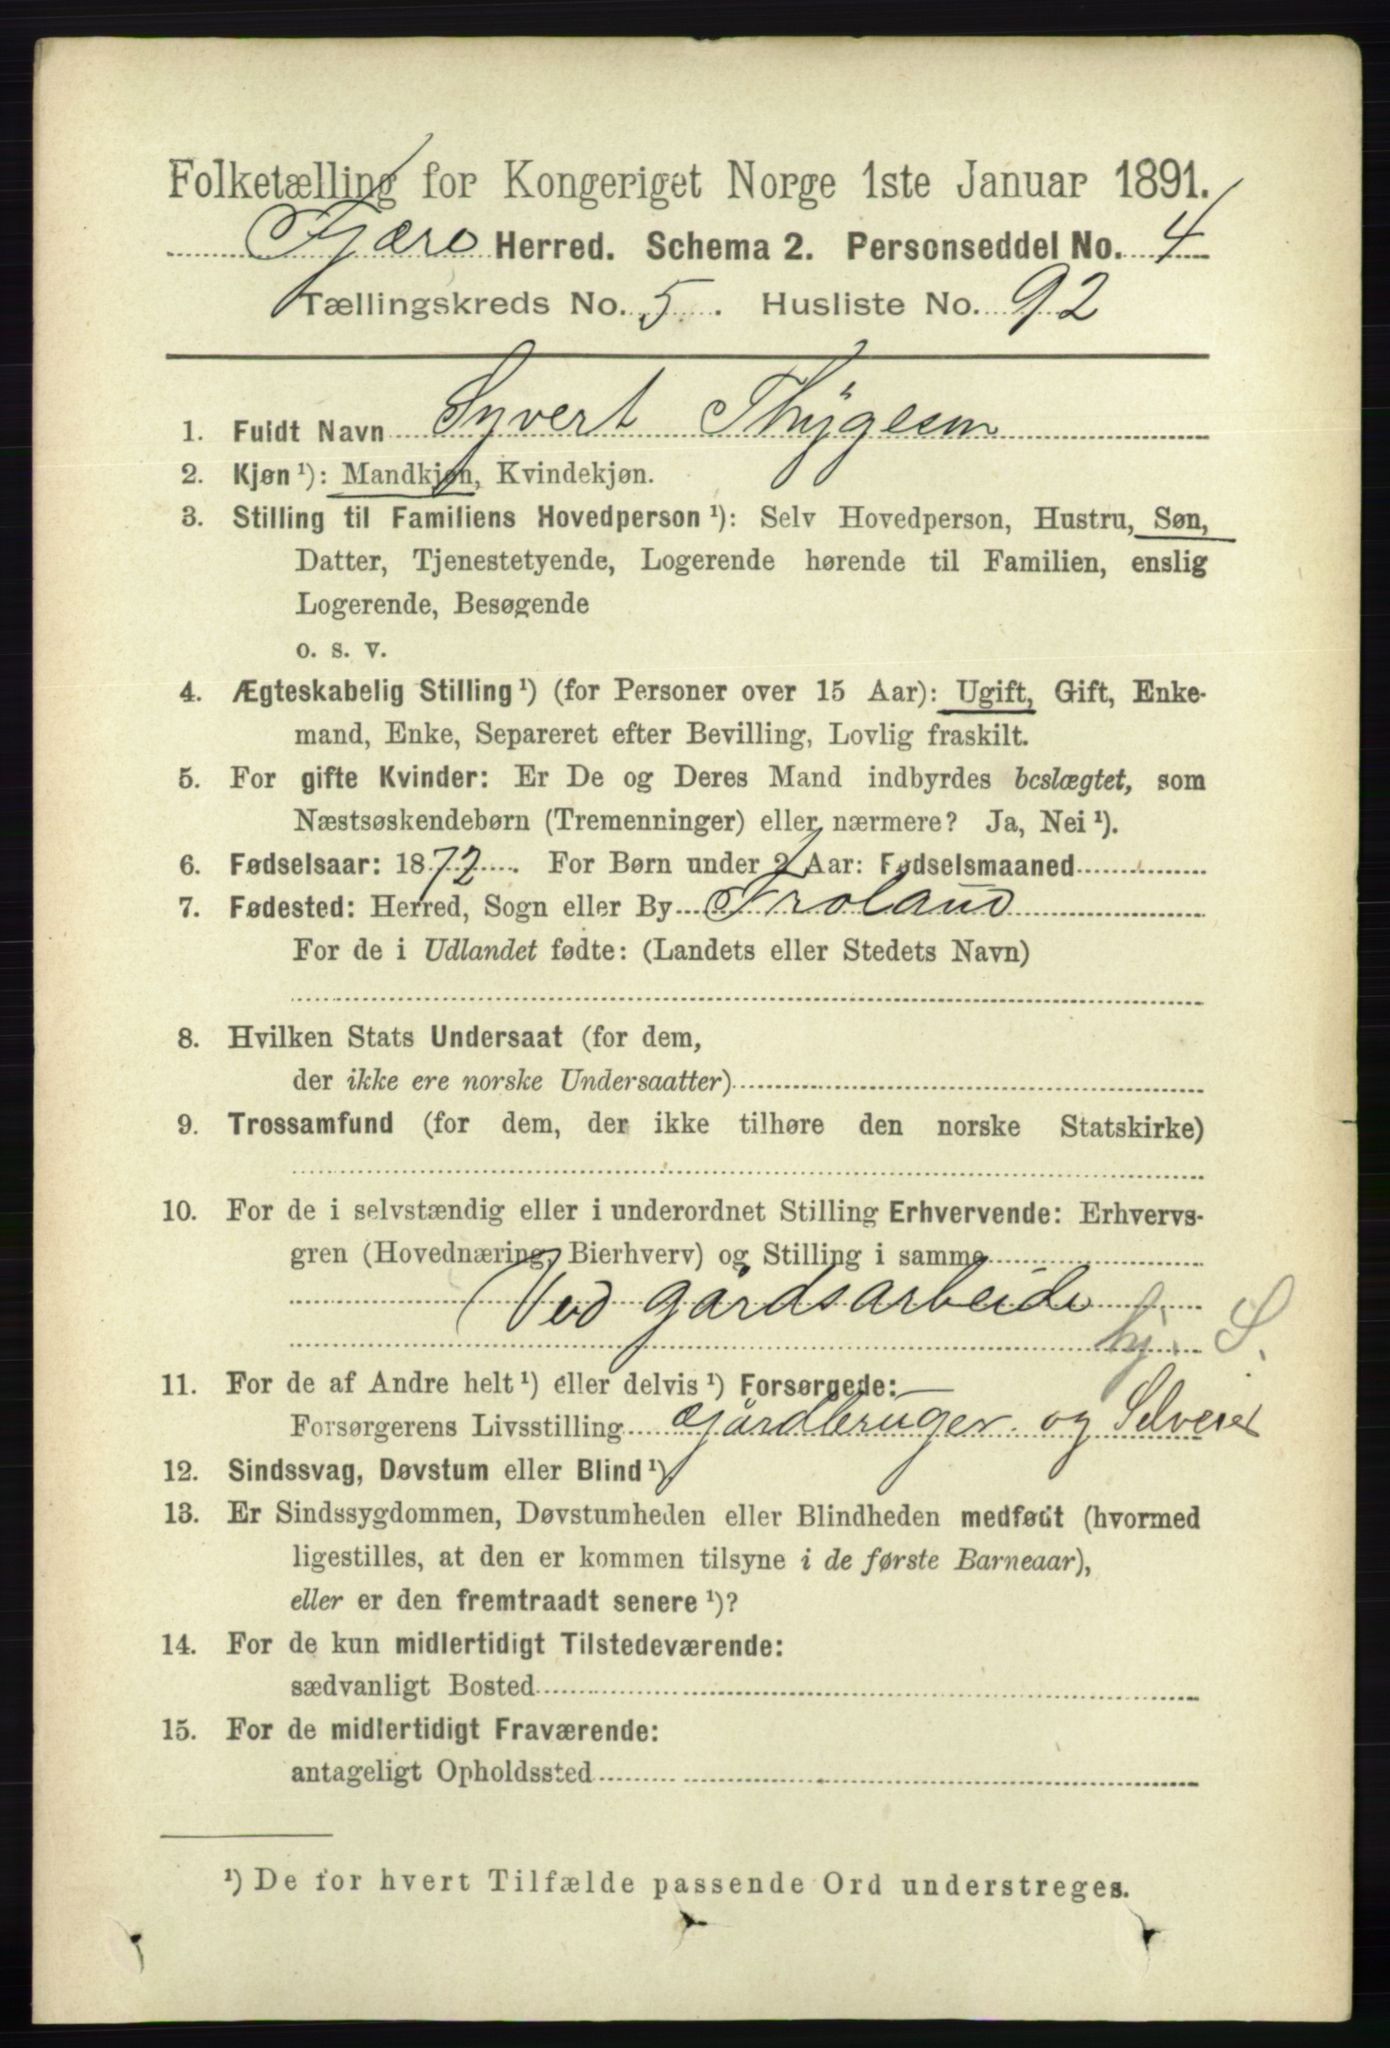 Folketælling for Kongeriget Norge 1ste Januar 1891.
Fjære Herred. Schema 2. Personseddel No. 4
Tællingskreds No. 5. Husliste No. 92
1. Fuldt Navn Syvert Thygesen
2. Kjøn ¹): Mandkjøn, Kvindekjøn.
3. Stilling til Familiens Hovedperson ¹): Selv Hovedperson, Hustru, Søn,
Datter, Tjenestetyende, Logerende hørende til Familien, enslig
Logerende, Besøgende
o. s. v.
4. Ægteskabelig Stilling ¹) (for Personer over 15 Aar): Ugift, Gift, Enke-
mand, Enke, Separeret efter Bevilling, Lovlig fraskilt.
5. For gifte Kvinder: Er De og Deres Mand indbyrdes beslægtet, som
Næstsøskendebørn (Tremenninger) eller nærmere? Ja, Nei ¹).
6. Fødselsaar: 1872. For Børn under 2 Aar: Fødselsmaaned
7. Fødested: Herred, Sogn eller By Froland
For de i Udlandet fødte: (Landets eller Stedets Navn)
8. Hvilken Stats Undersaat (for dem,
der ikke ere norske Undersaatter)
9. Trossamfund (for dem, der ikke tilhøre den norske Statskirke)
10. For de i selvstændig eller i underordnet Stilling Erhvervende: Erhvervs-
gren (Hovednæring, Bierhverv) og Stilling i samme
Ved gårdsarbeide
hj. S.
11. For de af Andre helt ¹) eller delvis ¹) Forsørgede:
Forsørgerens Livsstilling Gårdbruger og Selveier
12. Sindssvag, Døvstum eller Blind ¹).
13. Er Sindssygdommen, Døvstumheden eller Blindheden medfødt (hvormed
ligestilles, at den er kommen tilsyne i de første Barneaar),
eller er den fremtraadt senere ¹)?
14. For de kun midlertidigt Tilstedeværende:
sædvanligt Bosted
15. For de midlertidigt Fraværende:
antageligt Opholdssted
¹) De for hvert Tilfælde passende Ord understreges.